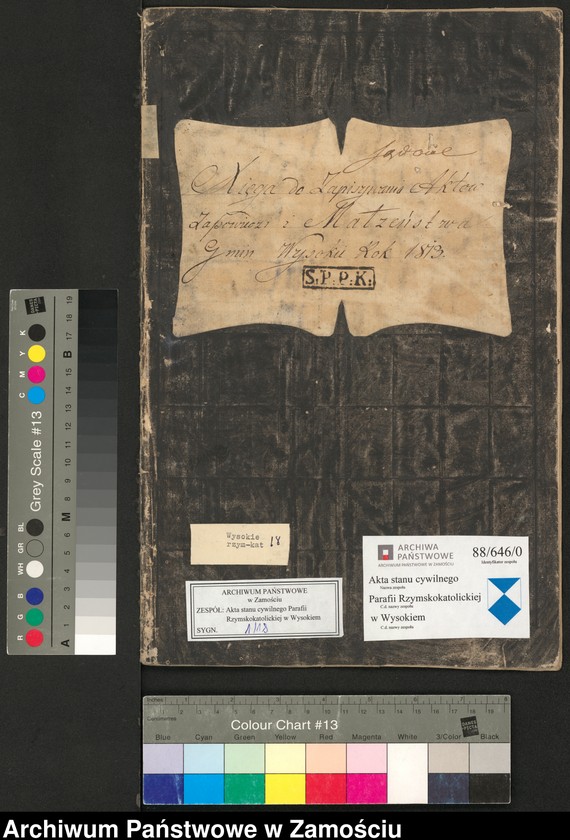 Sądowe
Xięga do Zapisywania Aktów
Zapowiedzi i Małżeństwa
Gmin Wysokie Rok 1813.
S.P.P.K.
Wysokie
rzym-kat 18
ARCHIWUM PAŃSTWOWE
w Zamościu
ZESPÓŁ: Akta stanu cywilnego Parafii
Rzymskokatolickiej w Wysokiem
SYGN. 1/18
ARCHIWA
PAŃSTWOWE
ARCHIWUM PAŃSTWOWE W ZAMOŚCIU
88/646/0
Identyfikator zespołu
Akta stanu cywilnego
Nazwa zespołu
Parafii Rzymskokatolickiej
C.d. nazwy zespołu
w Wysokiem
C.d. nazwy zespołu
Grey Scale #13
C M Y K
R G B WH GR BL
A 1 2 3 4 5 6 M 8 9 10 11 12 13 14 15 B 17 18 19
DANES PICTA
Inches 1 2 3 4 5 6 7
Centimetres 1 2 3 4 5 6 7 8 9 10 11 12 13 14 15 16 17 18 19
Colour Chart #13
DANES PICTA
Blue Cyan Green Yellow Red Magenta White 3/Color Black
Archiwum Państwowe w Zamościu